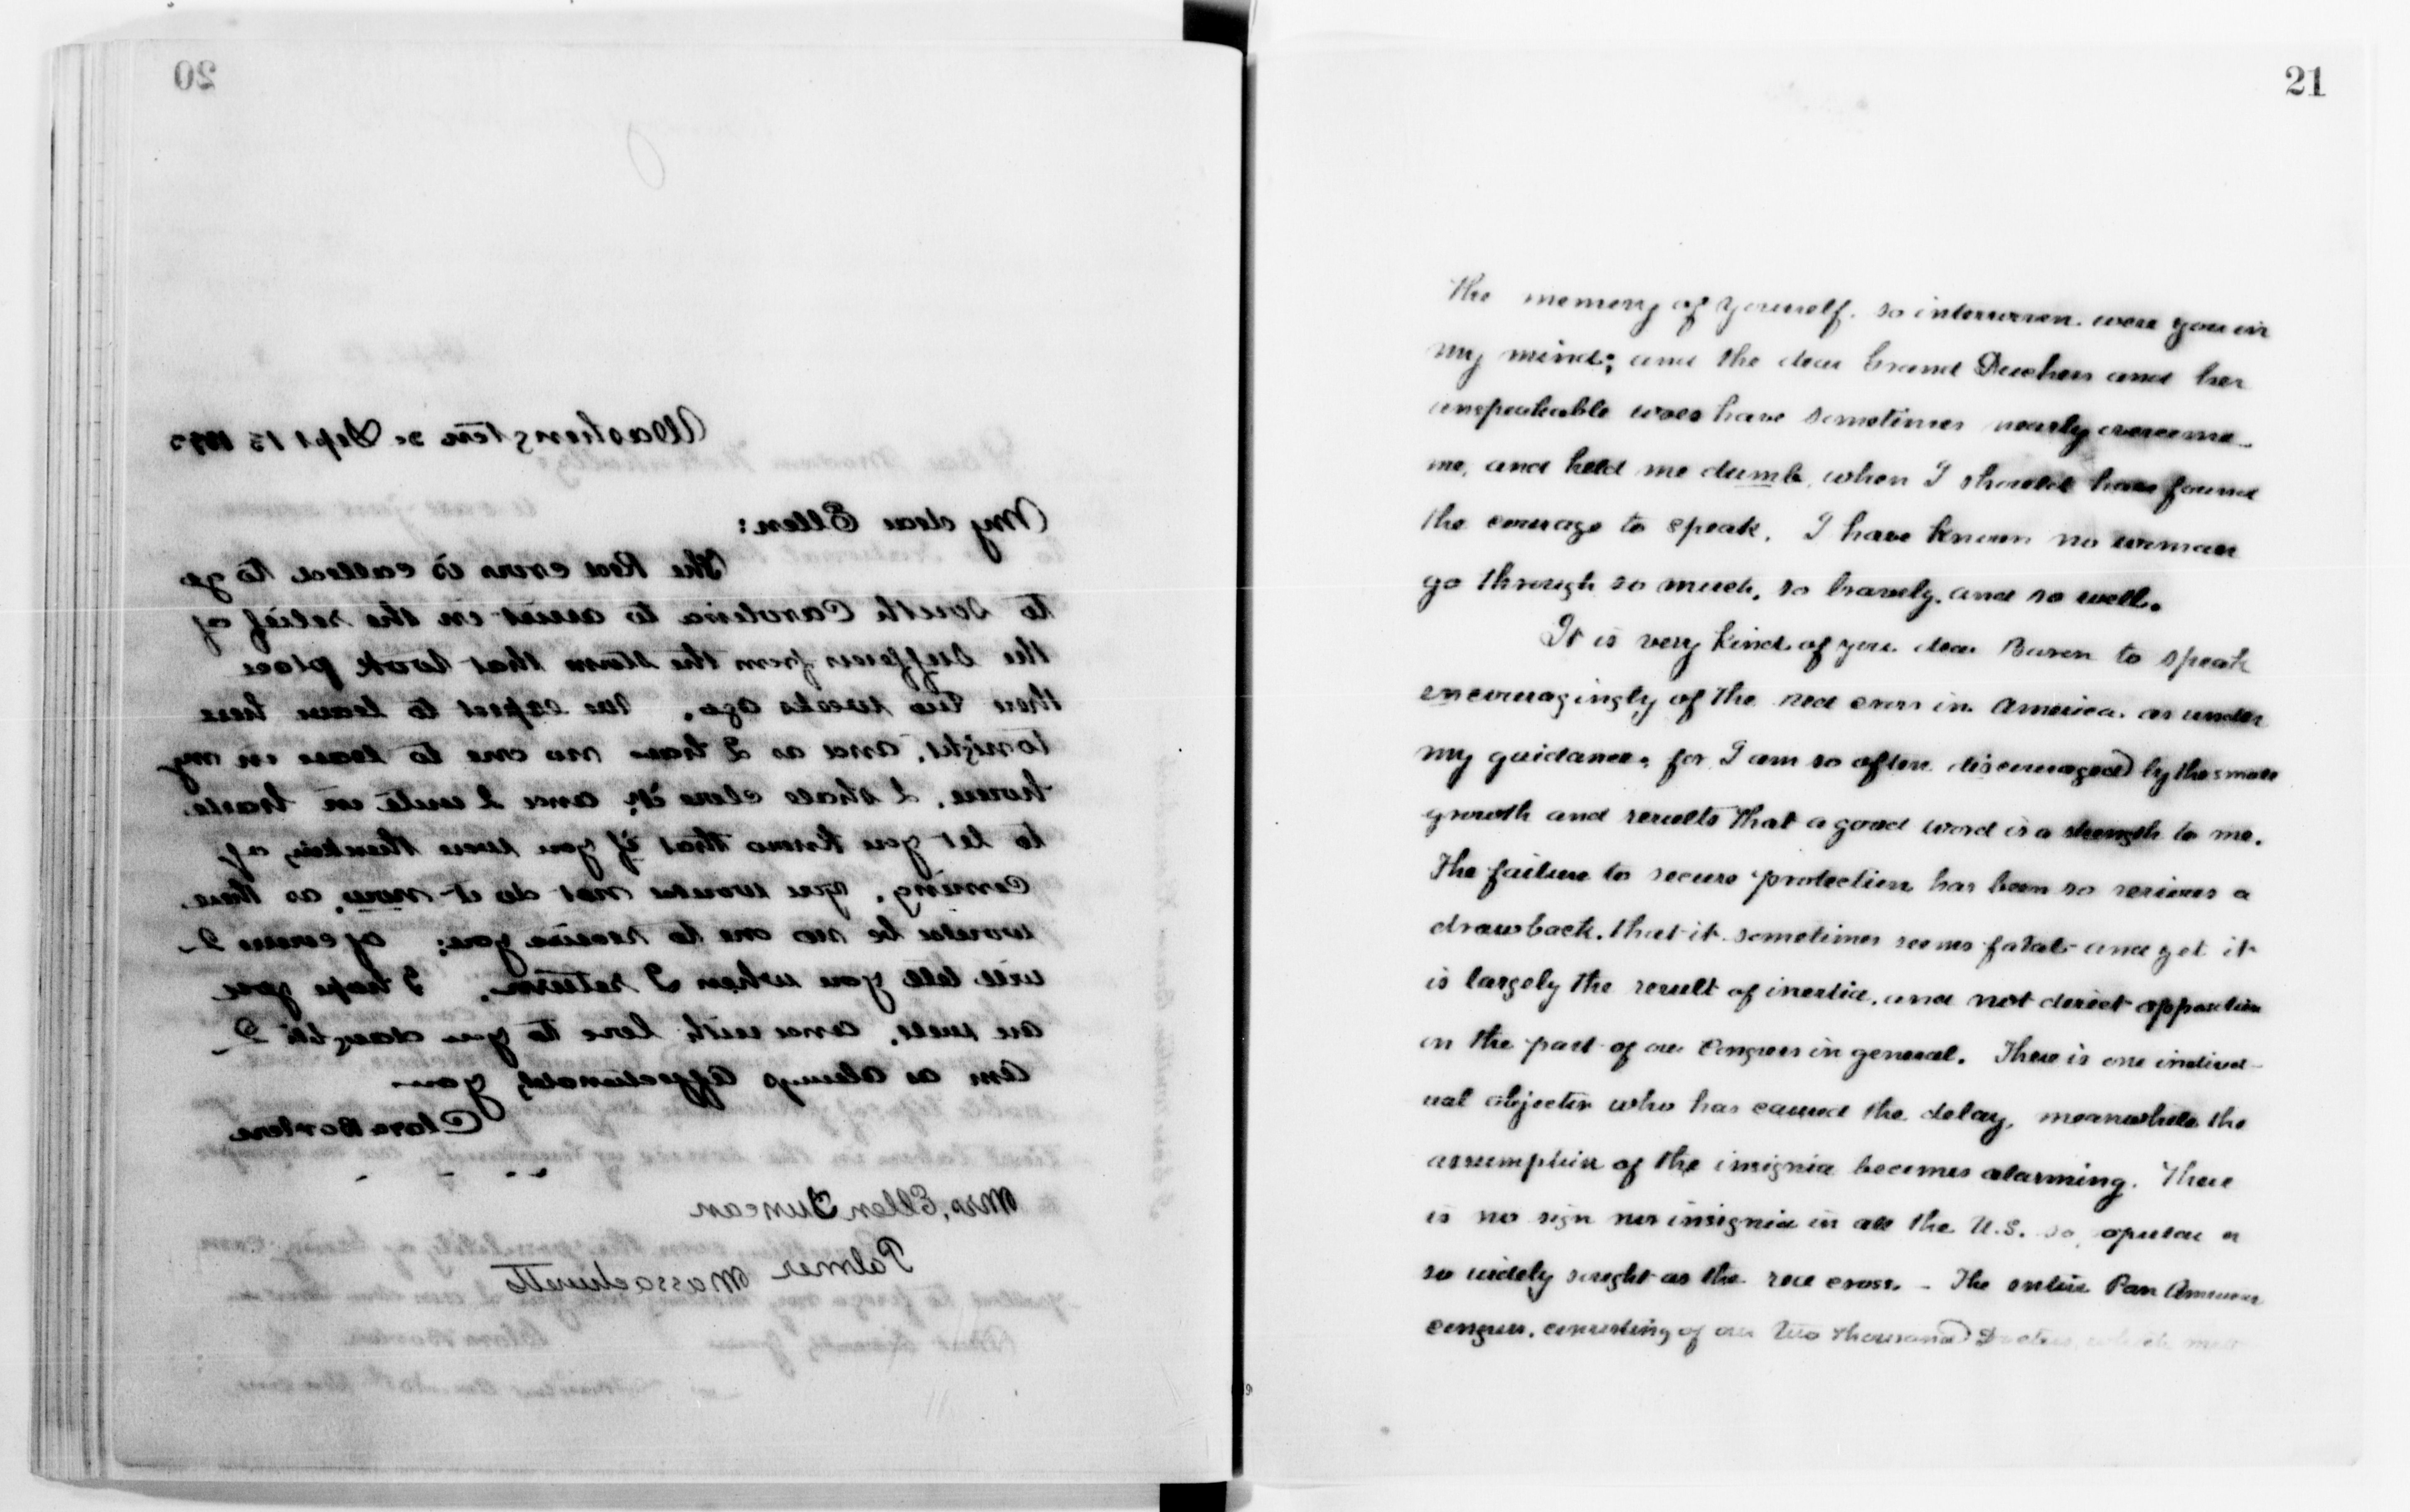 20
Washington Dc Sept 13 1893
My dear Ellen:
The Red cross is called to go
to South Carolina to assist in the relief of
the sufferers from the storm that took place
there two weeks ago. We expect to leave here
tonight, and as I have no one to leave in my
house, I shall close it; and I write in haste
to let you know that if you were thinking of
coming, you would not do it now, as there
would be no one to receive you; of course I
will tell you when I return. I hope you
are well, and with love to you daughter I
am as always affectionately your
Clara Barton
Mrs. Ellen Duncan
Palmer
Massachusetts
21
The memory of yourself. so interwoven were you in
my mind; and the dear Grand Duchess and her
unspeakable woes have sometimes nearly overcome
me, and held me dumb, when I should have found
the courage to speak. I have known no woman
go through so much, so bravely, and so well.
It is very kind of you dear Baron to speak
encouragingly of the red cross in America as under
my guidance, for I am so often discouraged by the small
growth and results that a good word is a strength to me.
The failure to secure protection has been so serious a
drawback, that it sometimes seems fatal and yet it
is largely the result of inertia, and not direct opposition
on the part of our Congress in general. There is one individ-
ual objector who has caused the delay, meanwhile the
assumption of the insignia becomes alarming. There
is no sign nor insignia in all the U.S. so popular or
so widely sought as the red cross. - The entire Pan American
congress, consisting of over two thousand Doctors, which met